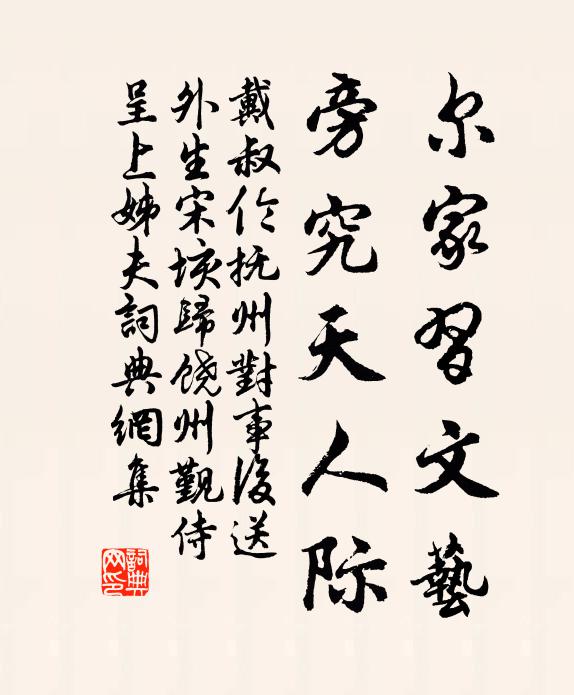 尔家習文藝
旁究天人际
戴叔伦抚州對事後送
外生宋垓歸饶州觐侍
呈上姊夫詞典網集
詞典网印